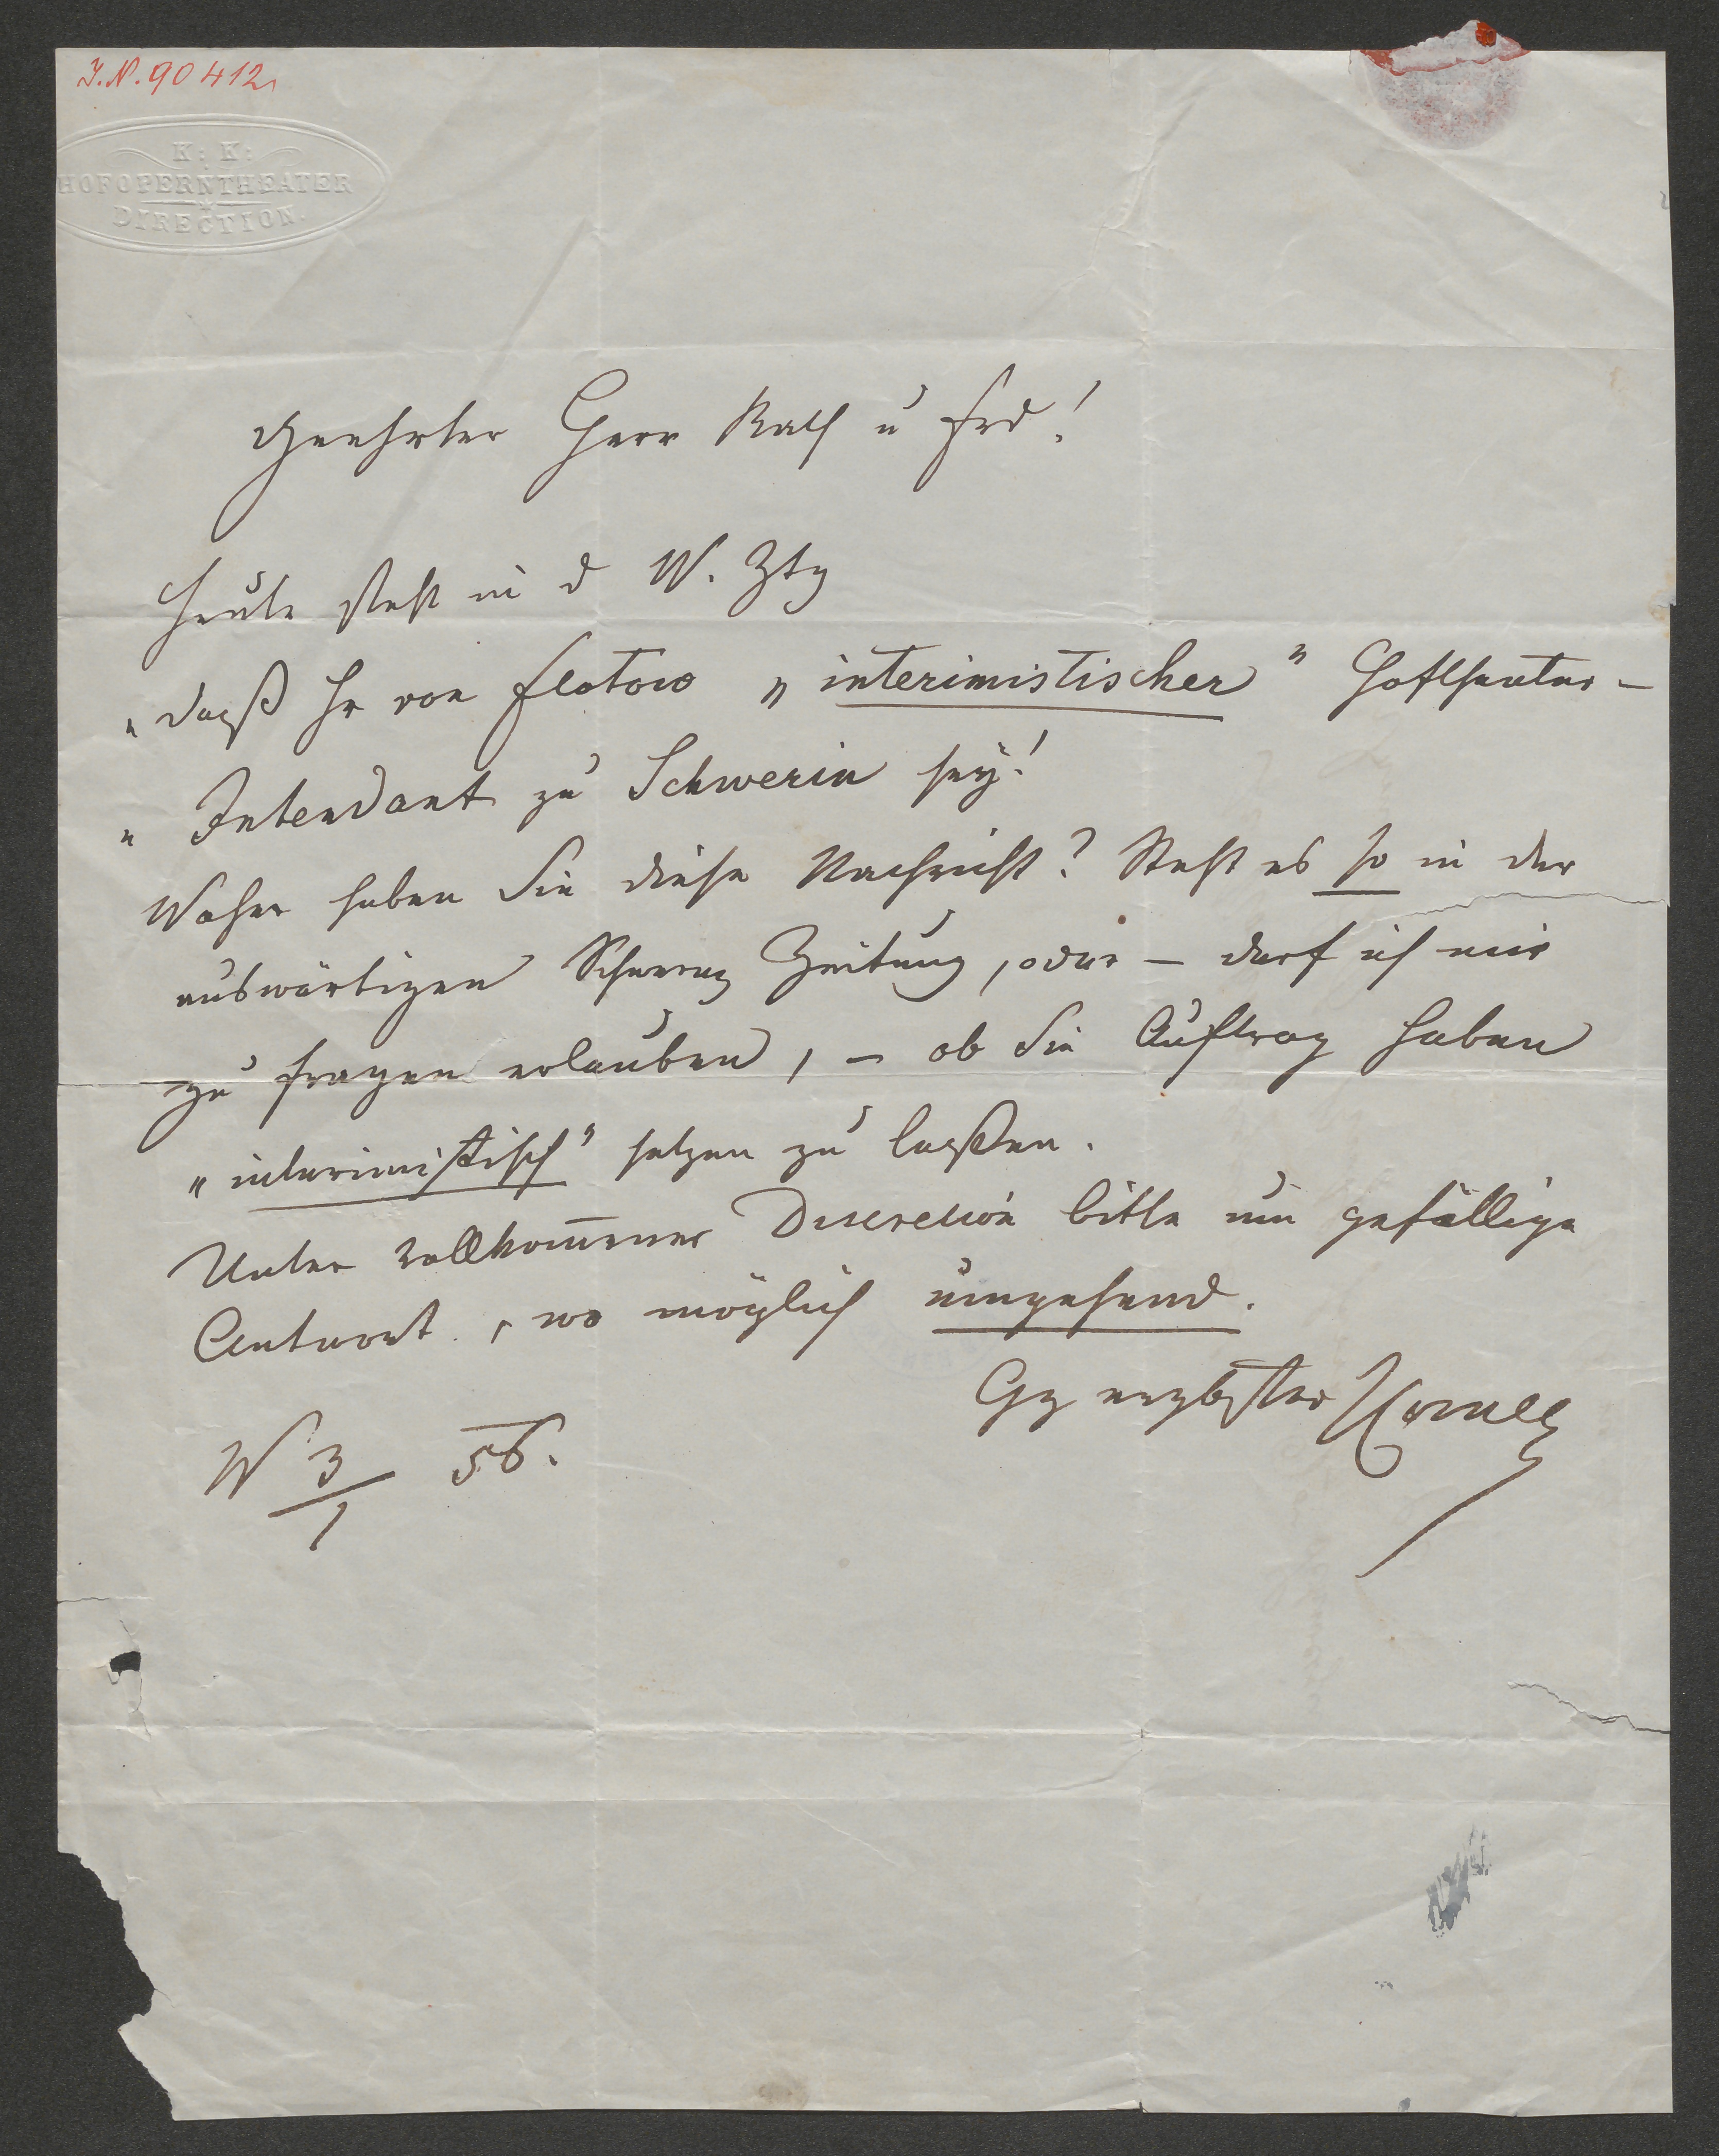 J.N. 90412
K: K:
HOFOPERNTHEATER
DIRECTION.
Geehrter Herr Rath u Frd!
Heute steht in d W. Ztg
„daß Hr von Flotow „interimistischer" Hoftheater-
„Intendant zu Schwerin sey!
Woher haben Sie diese Nachricht? Steht es so in der
auswärtigen Zeitung, oder – darf ich mir
zu fragen erlauben, – ob Sie Auftrag haben
„interimistisch" setzen zu laßen.
Unter vollkom̅ener Discretion bitte um gefällige
Antwort, wo möglich umgehend.
W 3/1 56.